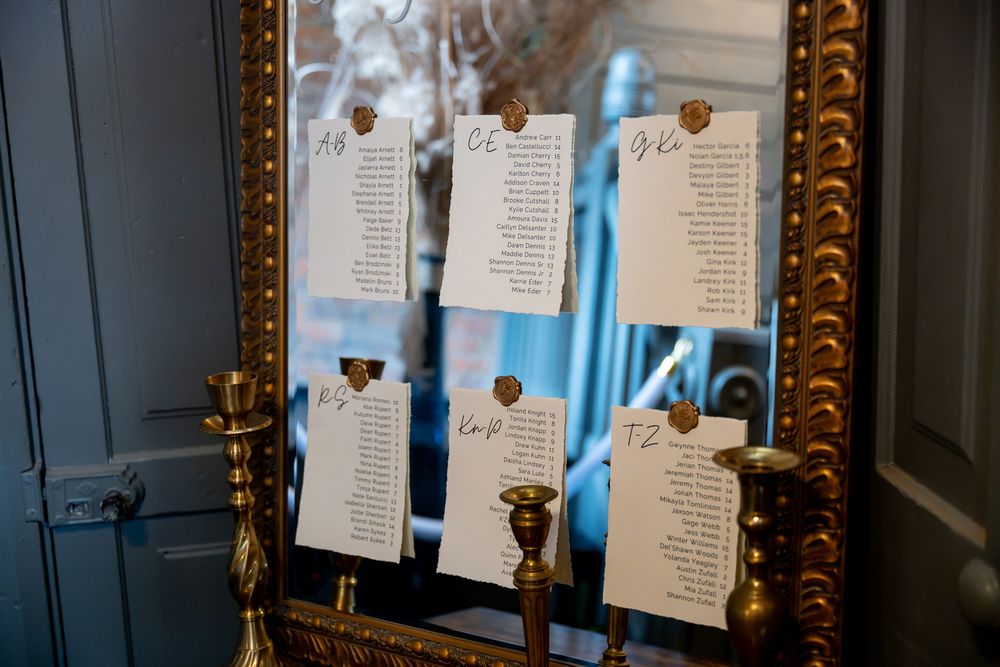 A-B
Amaiya Arnett 6
Elijah Arnett 6
Jacierra Arnett 1
Nicholas Arnett 5
Shayla Arnett 1
Stephanie Arnett 5
Wendell Arnett 5
Whitney Arnett 1
Paige Baker 9
Dede Betz 13
Dennis Betz 13
Erika Betz 13
Evan Betz 2
Ben Brodzinski 9
Ryan Brodzinski 9
Madelin Bruns 1
Mark Bruns 10
C-E
Andrew Carr 11
Ben Castellucci 14
Damian Cherry 15
David Cherry 5
Karlton Cherry 6
Addison Craven 14
Brian Cuppett 10
Brooke Cutshall 8
Kylie Cutshall 8
Amoura Davis 15
Caitlyn Delsanter 10
Mike Delsanter 10
Dawn Dennis 13
Maddie Dennis 13
Shannon Dennis Sr 13
Shannon Dennis Jr 2
Karrie Eder 7
Mike Eder 7
G-Ki
Hector Garcia 6
Nolan Garcia 1,5,6
Destiny Gilbert 3
Devyon Gilbert 3
Malaya Gilbert 3
Mike Gilbert 3
Oliver Harris 6
Isaac Hendershot 10
Kamie Keener 15
Karson Keener 15
Jayden Keener 4
Josh Keener 4
Gina Kirk 11
Jordan Kirk 9
Landrey Kirk 11
Rob Kirk 11
Sam Kirk 2
Shawn Kirk 9
R-S
Mariana Romeo 10
Abe Rupert 8
Autumn Rupert 4
Dave Rupert 7
Dean Rupert 7
Faith Rupert 7
Joann Rupert 7
Mark Rupert 7
Nina Rupert 8
Noelle Rupert 4
Timmy Rupert 2
Tonja Rupert 7
Nate Santucci
Isabella Sherban 12
Jodie Sherban 12
Brandi Sihock 14
Karen Sykes 3
Robert Sykes 3
Kn-P
Ireland Knight 15
Tonita Knight 8
Jordan Knapp 9
Lindsey Knapp 9
Drew Kuhn 11
Logan Kuhn 11
Daisha Lindsey 3
Sara Lute 5
Ashland Manley
Quinn
T-Z
Gwynne
Jaci
Jerian Thomas
Jeremiah Thomas 14
Jeremy Thomas 14
Jonah Thomas 14
Mikayla Tomlinson 14
Jaxson Watson 2
Gage Webb 5
Jess Webb 5
Winter Williams 15
Del'Shawn Woods 6
Yolanda Yeagley 7
Austin Zufall 2
Chris Zufall 12
Mia Zufall 2
Shannon Zufall